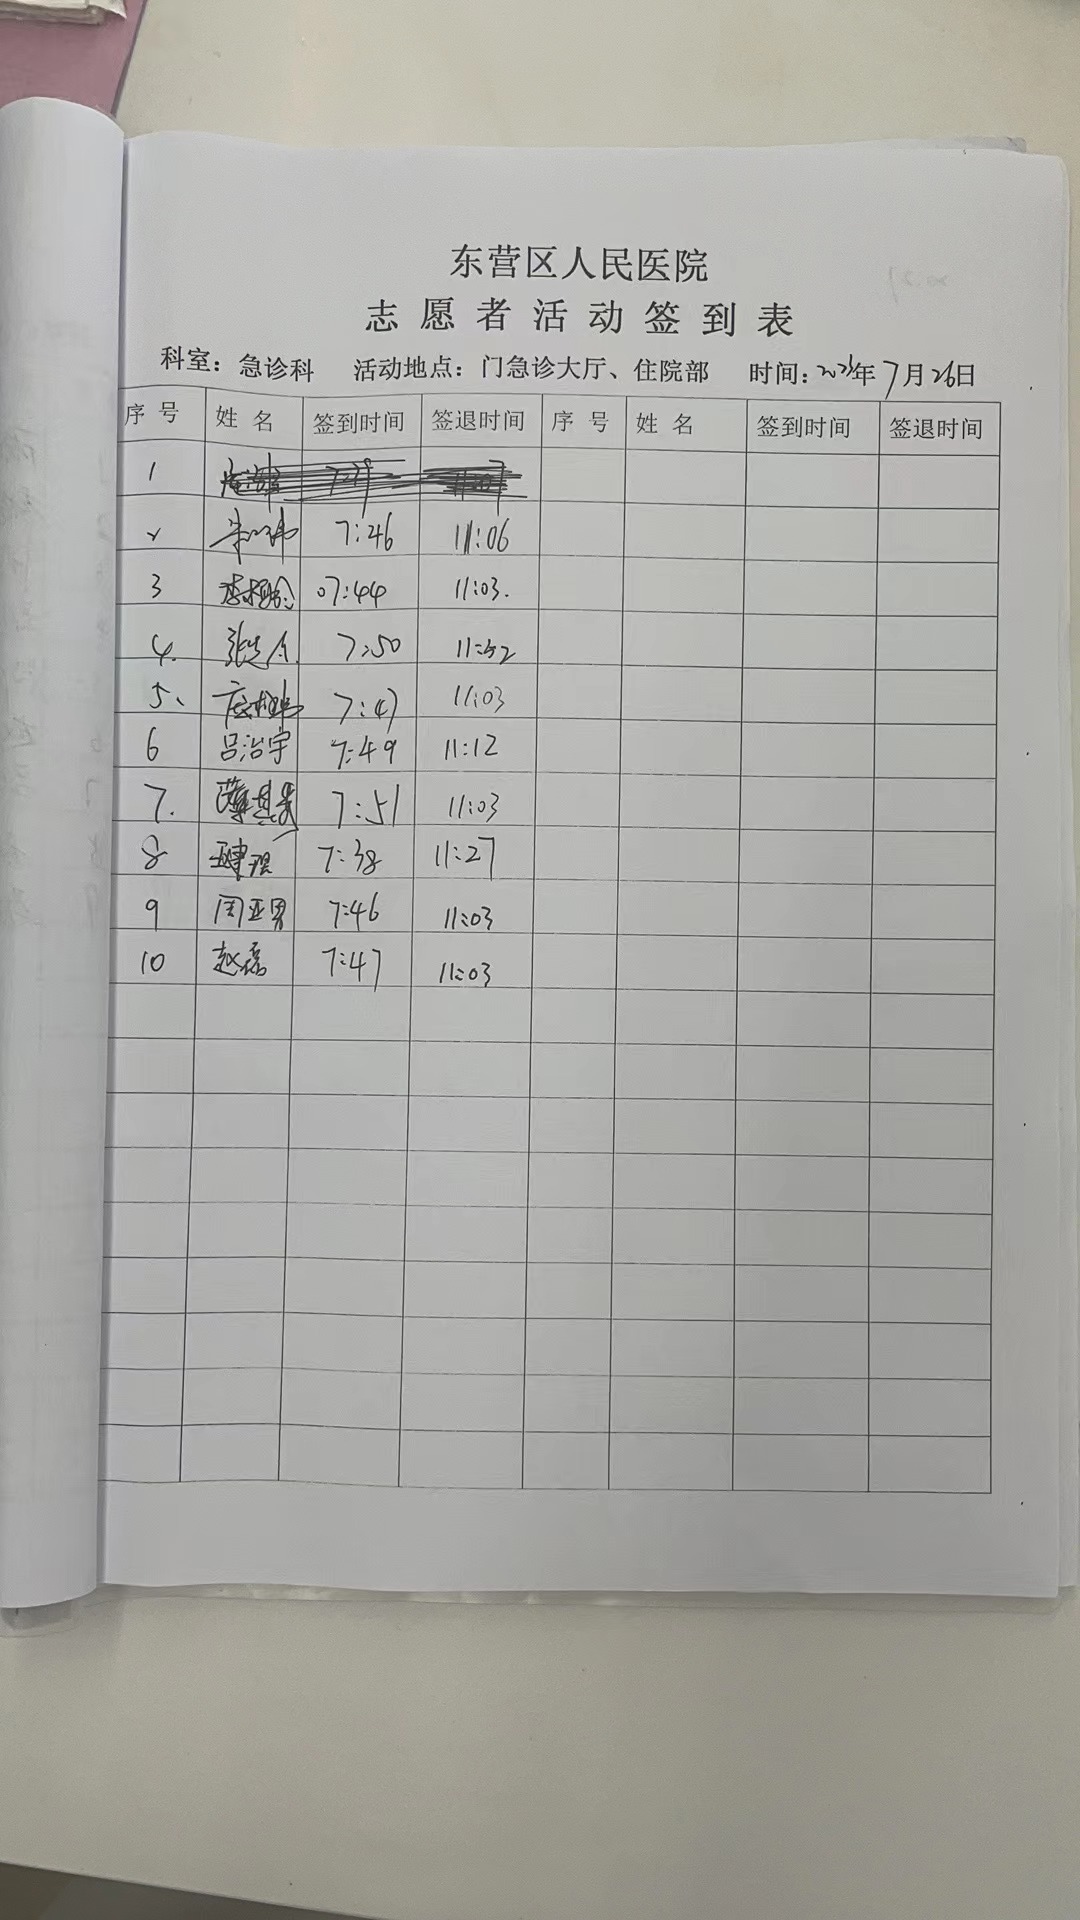 东营区人民医院
志愿者活动签到表
科室：急诊科 活动地点：门急诊大厅、住院部 时间：年7月26日
序号 姓名 签到时间 签退时间 序号 姓名 签到时间 签退时间
1
2 7:46 11:06
3 07:44 11:03.
4. 7:50 11:52
5、 7:47 11:03
6 吕治宇 7:49 11:12
7. 7:51 11:03
8 7:38 11:27
9 周亚男 7:46 11:03
10 赵磊 7:47 11:03